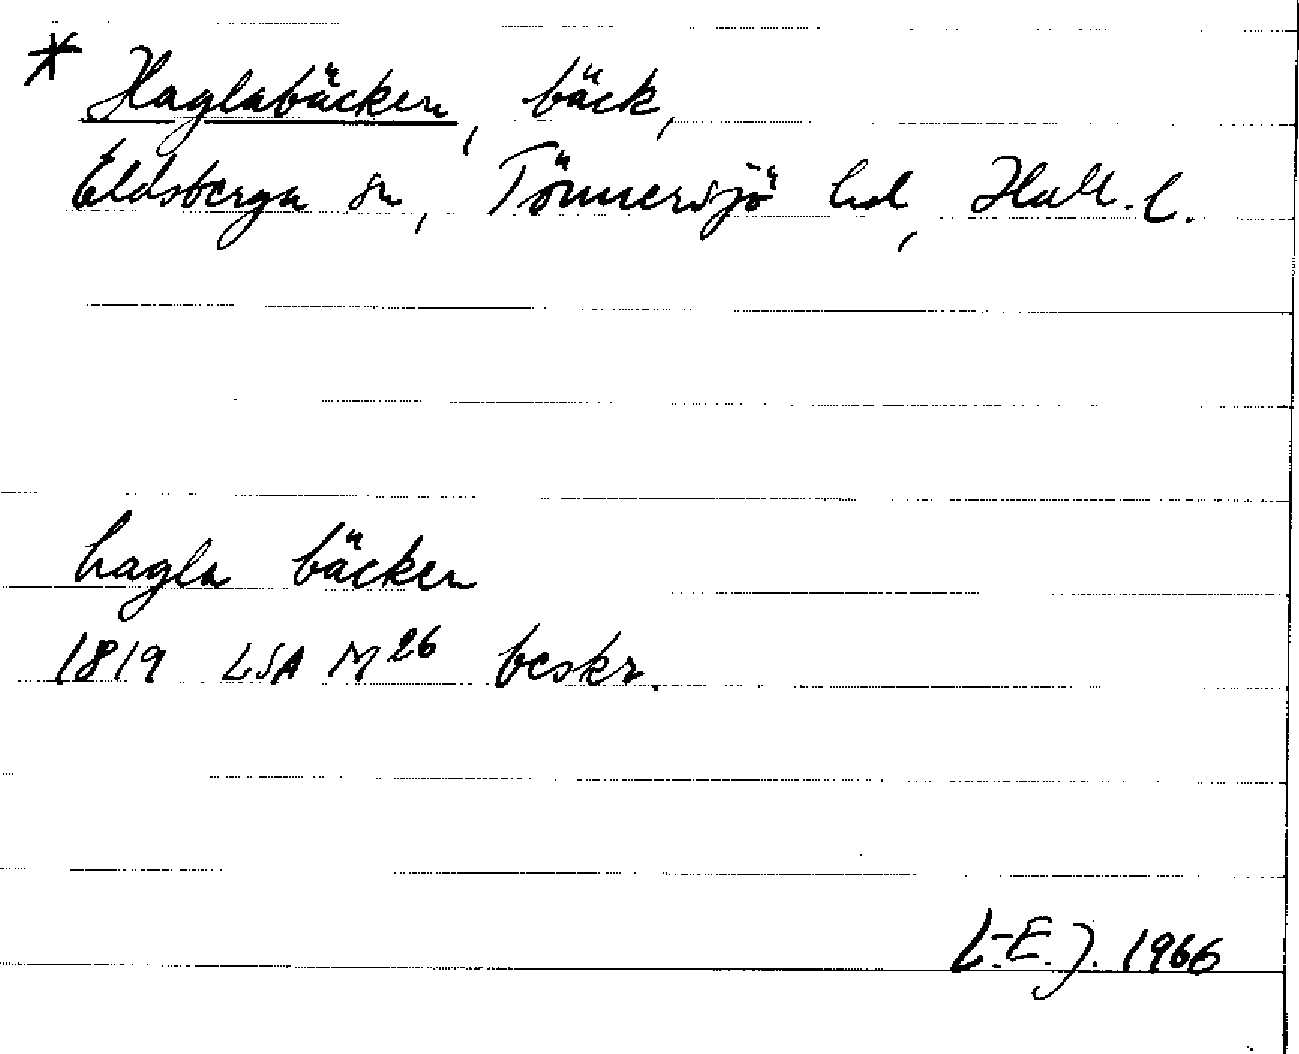 * Haglabäcken, bäck,
Eldsberga sn, Tönnersjö hd, Hall. l.
hagla bäcken
1819 LSA M26 beskr.
L-E.J. 1966